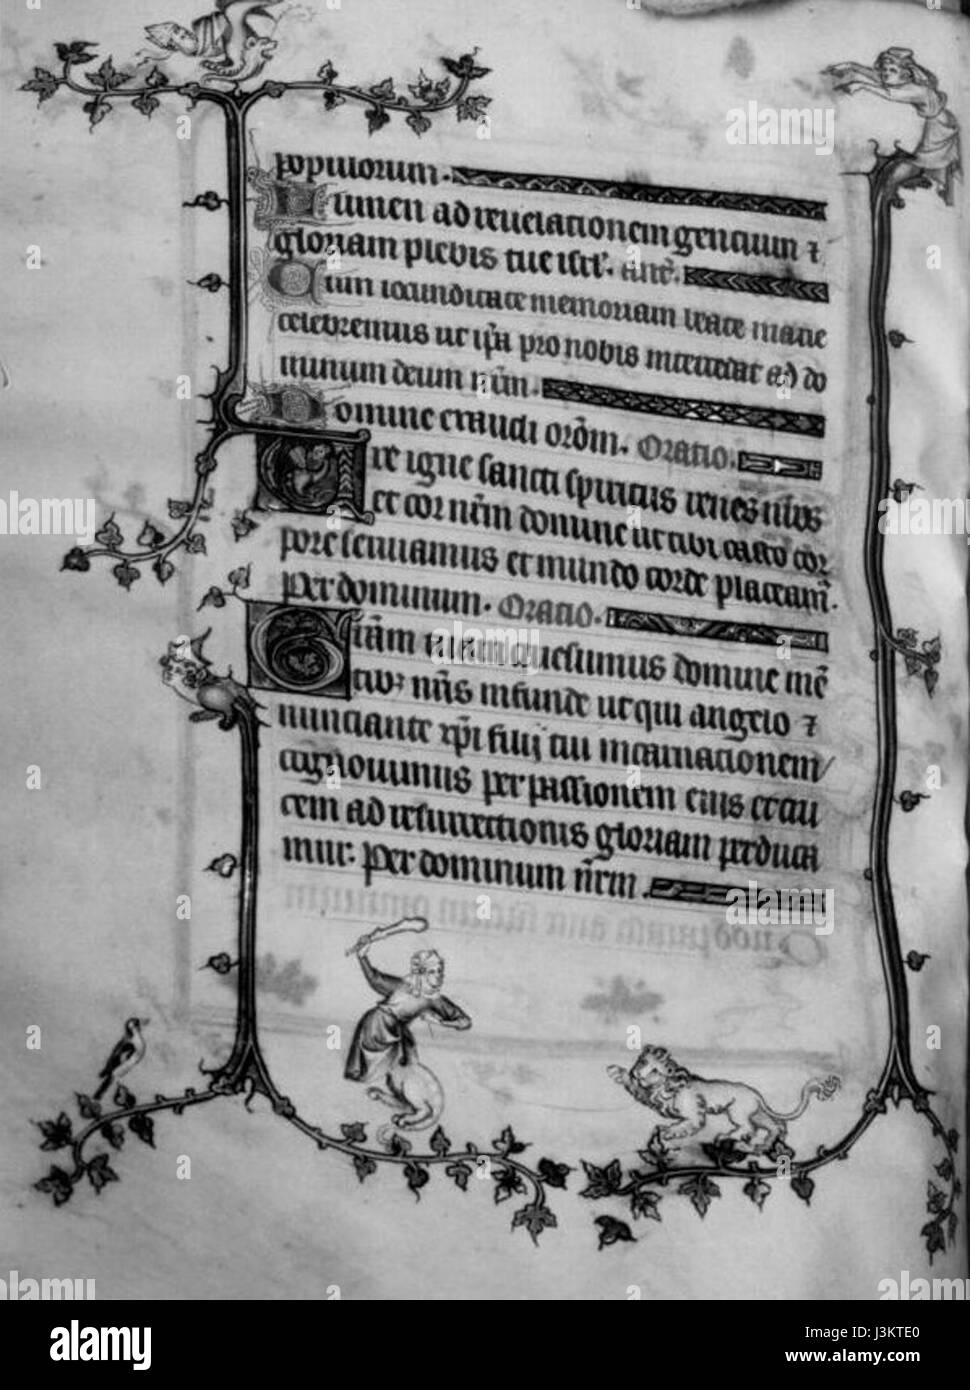 populorum.
Lumen ad reuelationem gentium ⁊
gloriam plebis tue isrl'. Ant'.
Cum iocunditate memoriam beate marie
celebremus ut ip̄a pro nobis intercedat ad do
minum deum nr̄m.
Domine exaudi orōm. Oratio.
Ure igne sancti spiritus renes nr̄os
et cor nr̄m domine ut tibi casto cor
pore seruiamus et mundo corde placeam'.
Per dominum. Oratio.
Graciam tuam quesumus domine mē
tib' nr̄is infunde ut qui angelo
nunciante xp̄i filij tui incarnationem
cognouimus per passionem eius et cru
cem ad resurrectionis gloriam perduca
mur. Per dominum nr̄m.
a alamy stock photo
alamy
J3KTE0
www.alamy.com